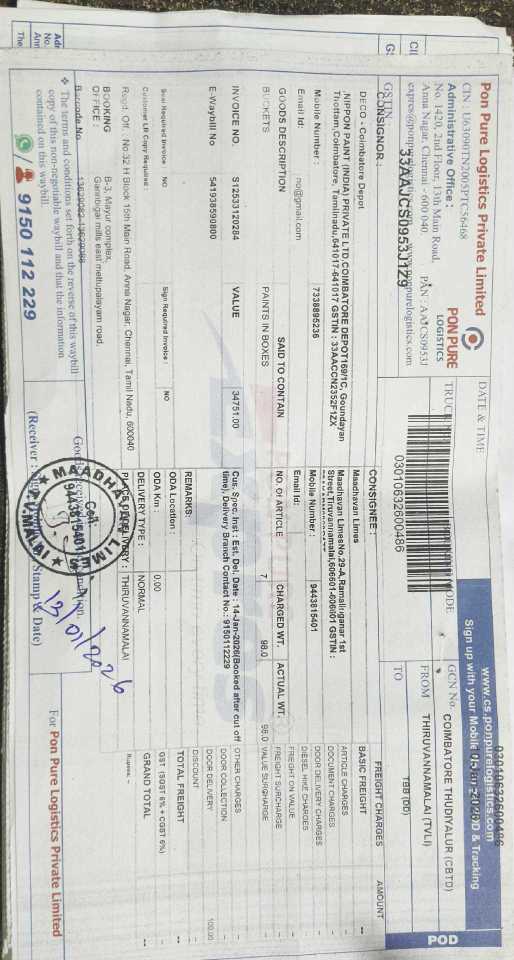 Pon Pure Logistics Private Limited
CIN : U63090TN2005PTC56468
Administrative Office :
No. 1420, 2nd Floor, 13th Main Road,
Anna Nagar, Chennai - 600 040.
PAN : AAJCS0953J
www.ponpurelogistics.com
GSTIN
33AAJCS0953J1Z9
PON PURE
LOGISTICS
DATE & TIME
03010632600486
www.cs.ponpurelogistics.com
Sign up with your Mobile
& Tracking
GCN No.
COIMBATORE THUDIYALUR (CBTD)
FROM
THIRUVANNAMALAI (TVLI)
TO
TBB (DD)
POD
CONSIGNOR :
DECO - Coimbatore Depot
,NIPPON PAINT (INDIA) PRIVATE LTD,COIMBATORE DEPOT169/1C, Goundayan
Thottam,Coimbatore, Tamilnadu,641017-641017 GSTIN : 33AACCN2352F1ZX
Mobile Number :
7338895236
Email Id:
no@gmail.com
CONSIGNEE :
Maadhavan Limes
Maadhavan LimesNo.29-A,Ramalinganar 1st
Street,Tiruvannamalai,606601-606601 GSTIN :
Mobile Number :
9443815401
Email Id:
GOODS DESCRIPTION
SAID TO CONTAIN
NO. Of ARTICLE
CHARGED WT.
ACTUAL WT.
BUCKETS
PAINTS IN BOXES
7
98.0
98.0
INVOICE NO.
S12533120284
VALUE
34751.00
Cus. Spec. Inst : Est. Del. Date : 14-Jan-2026(Booked after cut off
time), Delivery Branch Contact No.: 9150112229
E-Waybill No
541938590800
REMARKS:
Seal Required Invoice :
NO
Sign Required Invoice :
NO
ODA Location :
ODA Km :
0.00
Customer LR Copy Required :
DELIVERY TYPE :
NORMAL
Regd. Off. : No:32, H Block 15th Main Road, Anna Nagar, Chennai, Tamil Nadu, 600040
PLACE OF DELIVERY :
THIRUVANNAMALAI
BOOKING
OFFICE :
B-3, Mayur complex,
mills east mettupalayam road,
Barcode No
FREIGHT CHARGES
AMOUNT
BASIC FREIGHT
--
ARTICLE CHARGES
DOCUMENT CHARGES
DOOR DELIVERY CHARGES
DIESEL HIKE CHARGES
FREIGHT ON VALUE
FREIGHT SURCHARGE
VALUE SURCHARGE
OTHER CHARGES
DOOR COLLECTION
DOOR DELIVERY
100.00
DISCOUNT
TOTAL FREIGHT
--
GST (SGST 6% + CGST 6%)
GRAND TOTAL
--
Rupees: --
❖ The terms and conditions set forth on the reverse of this waybill
copy of this non-negotiable waybill and that the information
contained on this waybill.
9150 112 229
(Receiver :
Stamp & Date)
MAADHAVAN LIMES
Cell:
9443815401
T.V.MALAI
13/01/2026
For Pon Pure Logistics Private Limited